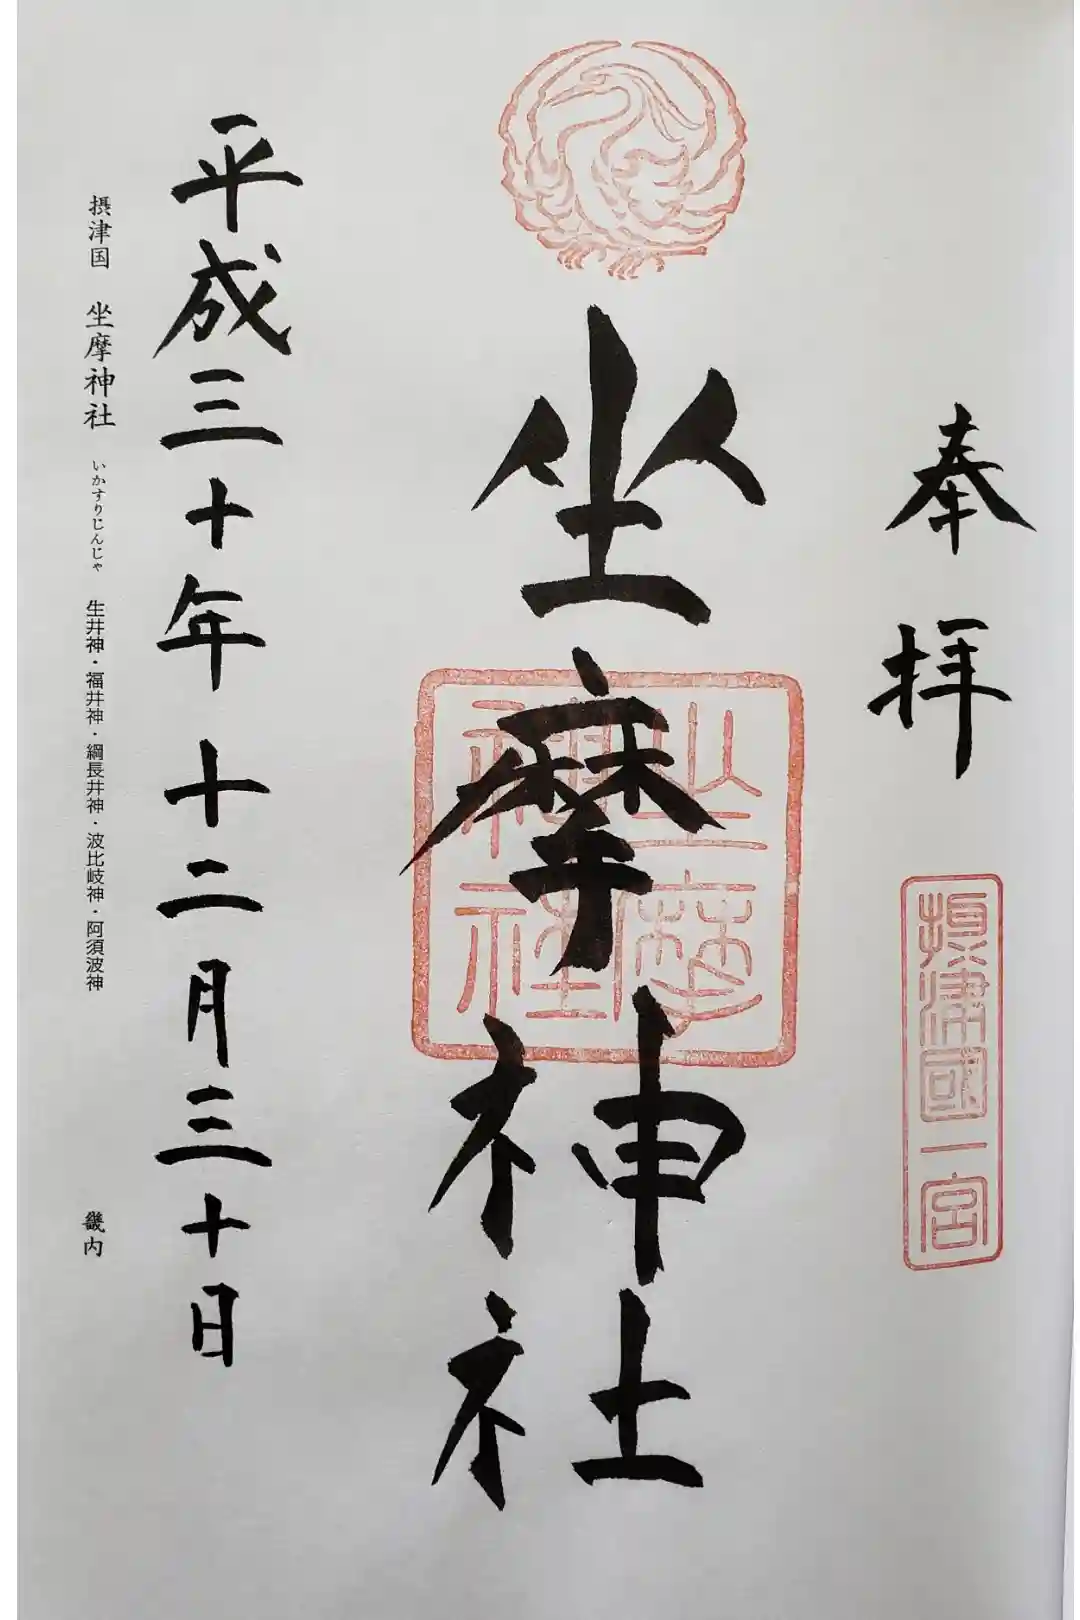 奉拝
摂津國一宮
坐摩神社
坐摩
神社
平成三十年十二月三十日
摂津国 坐摩神社 いかすりじんじゃ 生井神・福井神・綱長井神・波比岐神・阿須波神 畿内